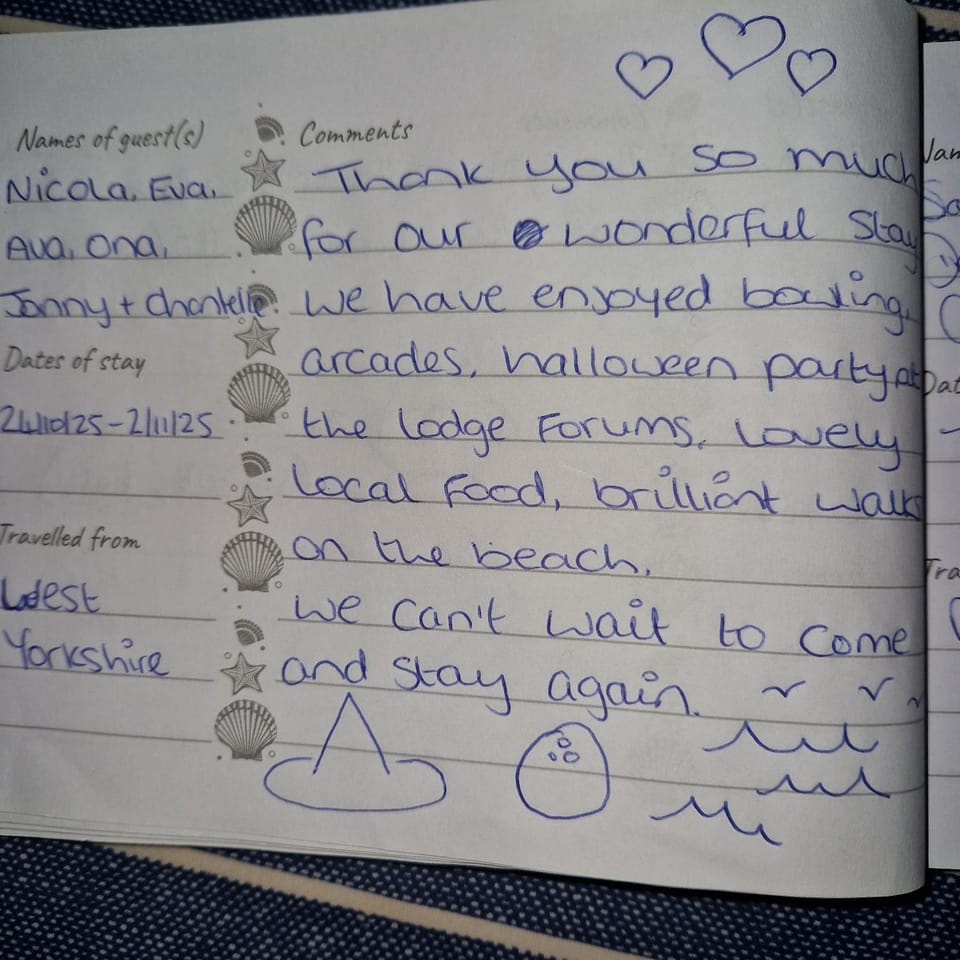 Names of guest(s)
Nicola, Eva,
Ava, Ona,
Jonny + Chantelle
Dates of stay
24/10/25-2/11/25
Travelled from
West
Yorkshire
Comments
Thank you so much
for our wonderful Stay
We have enjoyed bowling,
arcades, halloween party at
the lodge Forums, Lovely
local Food, brilliant walks
on the beach.
We can't wait to come
and stay again.
Dat
Tra